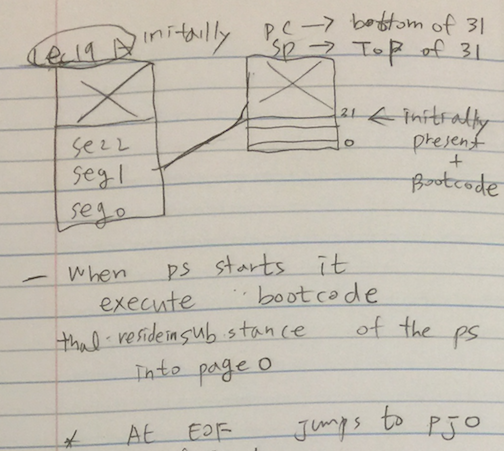 Lec 19 initally PC → bottom of 31
SP → Top of 31
31 ← initially
present
+
Bootcode
0
seg 2
seg 1
seg 0
- when ps starts it
execute bootcode
that resideinsubstance of the ps
into page 0
* At EOF jumps to pg 0